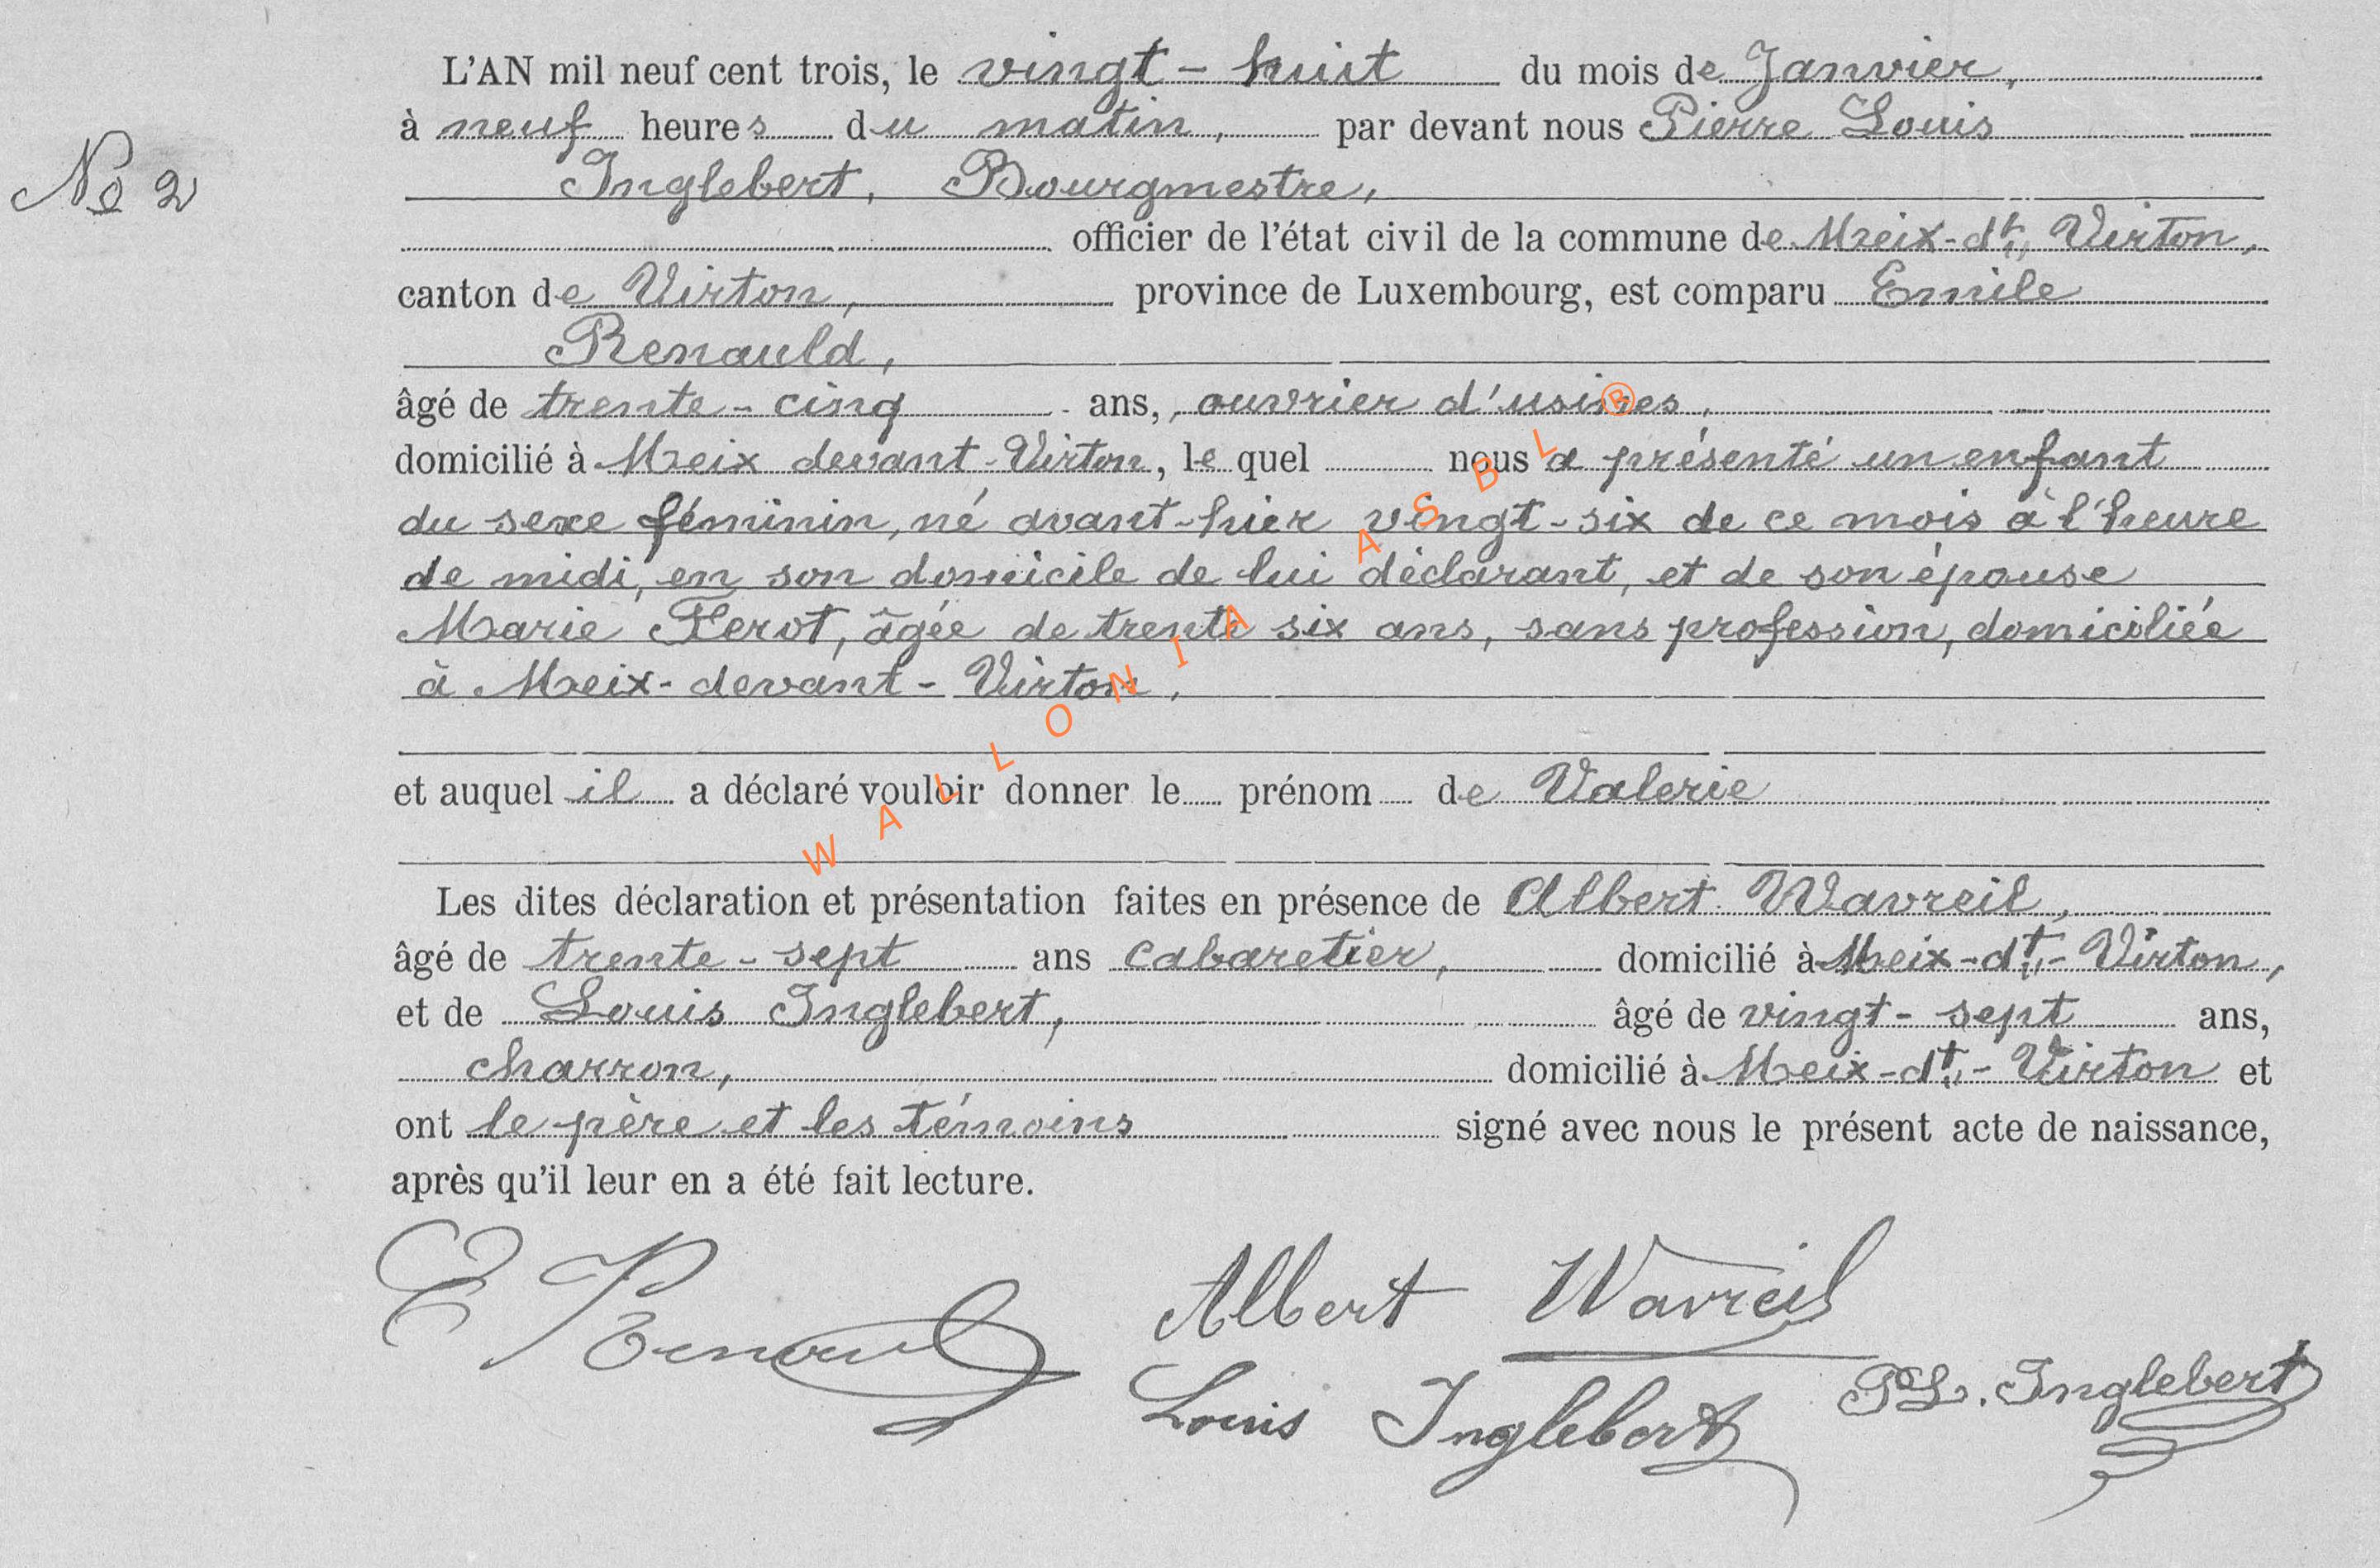 L'AN mil neuf cent trois, le vingt-huit du mois de Janvier,
à neuf heures du matin, par devant nous Pierre Louis
No 2
Inglebert, Bourgmestre,
officier de l'état civil de la commune de Meix-dt, Virton,
canton de Virton, province de Luxembourg, est comparu Emile
Renauld,
âgé de trente-cinq ans, ouvrier d'usines,
domicilié à Meix devant-Virton, le quel nous a présenté un enfant
du sexe féminin, né avant-hier vingt-six de ce mois à l'heure
de midi, en son domicile de lui déclarant, et de son épouse
Marie Ferot, âgée de trente six ans, sans profession, domiciliée
à Meix-devant-Virton.
et auquel il a déclaré vouloir donner le prénom de Valerie
Les dites déclaration et présentation faites en présence de Albert Wavreil,
âgé de trente-sept ans cabaretier, domicilié à Meix-dt-Virton,
et de Louis Inglebert, âgé de vingt-sept ans,
charron, domicilié à Meix-dt-Virton et
ont le père et les témoins signé avec nous le présent acte de naissance,
après qu'il leur en a été fait lecture.
E Renauld Albert Wavreil
Louis Inglebert PL. Inglebert
WALLONIA ASBL ®